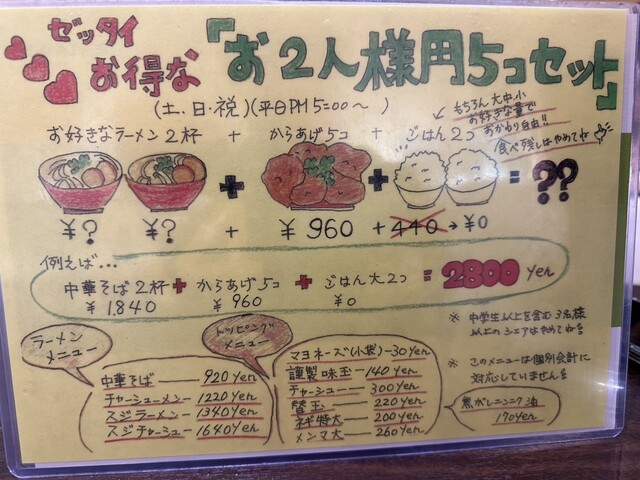 ゼッタイ
お得な『お2人様用5コセット』
(土、日・祝)(平日PM5:00〜)
もちろん大中小
お好きな量で
おかわり自由!!
食べ残しはやめてね
お好きなラーメン2杯 + からあげ5コ + ごはん2コ
+ + = ??
¥? ¥? + ¥960 + 440→¥0
例えば…
中華そば2杯 + からあげ5コ + ごはん大2コ = 2800yen
¥1840 ¥960 ¥0
※ 中学生以上を含む3名様
以上のシェアはやめてね
※ このメニューは個別会計に
対応していません
ラーメン
メニュー
中華そば — 920yen
チャーシューメン — 1220yen
スジラーメン — 1340yen
スジチャーシュー — 1640yen
トッピング
メニュー
マヨネーズ(小袋) — 30yen
燻製味玉 — 140yen
チャーシュー — 300yen
替玉 — 220yen
ネギ特大 — 200yen
メンマ大 — 260yen
焦がしニンニク油
170yen